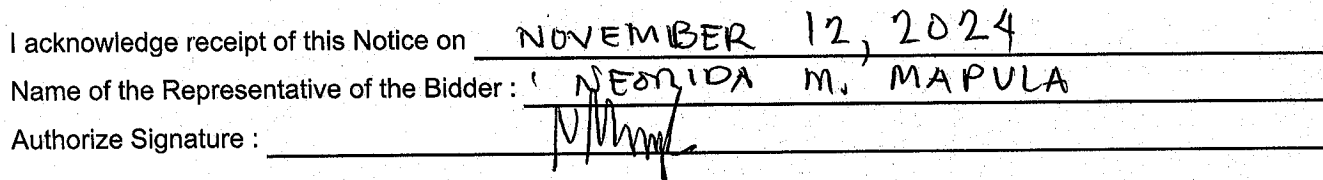 I acknowledge receipt of this Notice on NOVEMBER 12, 2024
Name of the Representative of the Bidder : NEORIDA M. MAPULA
Authorize Signature :